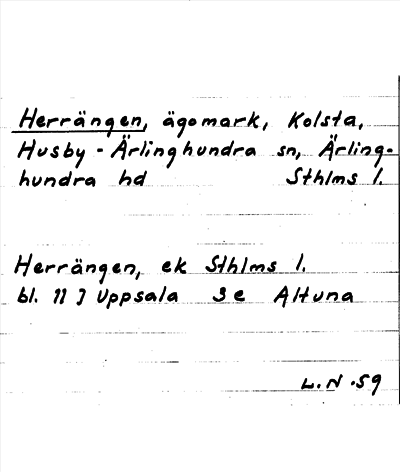 Herrängen, ägomark, Kolsta,
Husby-Ärlinghundra sn, Ärling-
hundra hd Sthlms l.
Herrängen, ek Sthlms l.
bl. 11 J Uppsala 3e Altuna
L.N.59